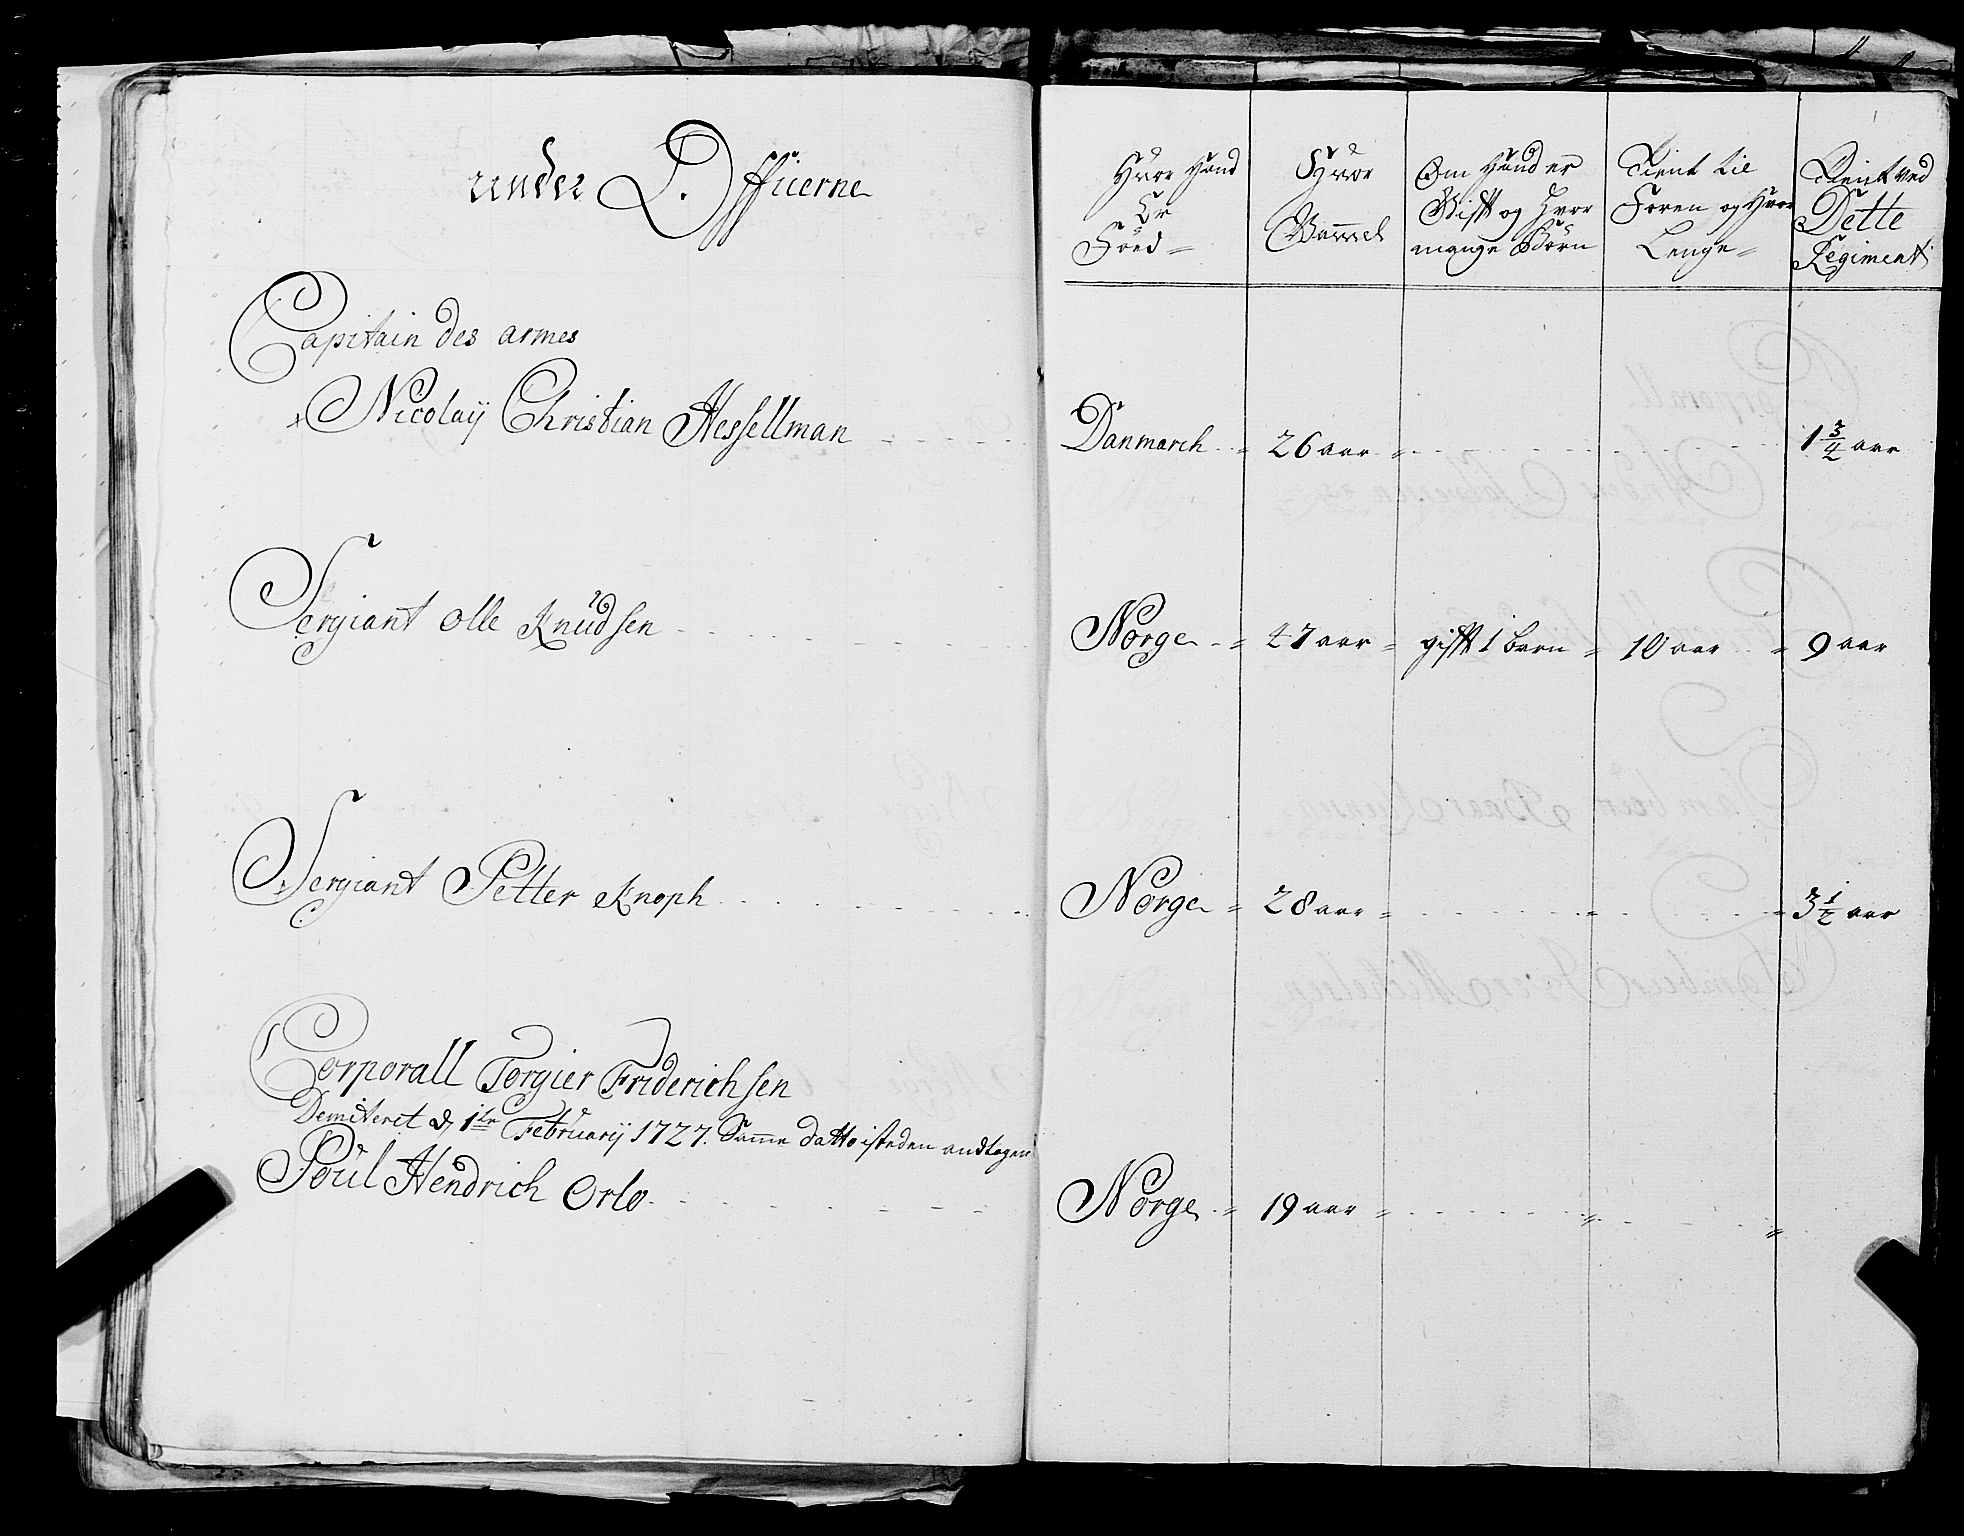 under Officerne
Capitain des armes
Nicolaÿ Christian Hessellman
Sergiant Olle Knudsen
Sergiant Petter Knoph
Corporall Torgier Friderichsen
Demiteret d 1te Februarÿ 1727. Samme datto isteden andtagen
Poul Hendrich Orlo
Hvor Hand
Er
Föed
Hvor
Gammel
Om Hand er
Gifft og Hvor
mange Börn
Tient til
Foren og Hvor
Lenge
Tient ved
Dette
Regiment
Danmarch 26 aar 1 3/4 aar
Norge 47 aar gifft 1 barn 10 aar 9 aar
Norge 28 aar 3 1/2 aar
Norge 19 aar